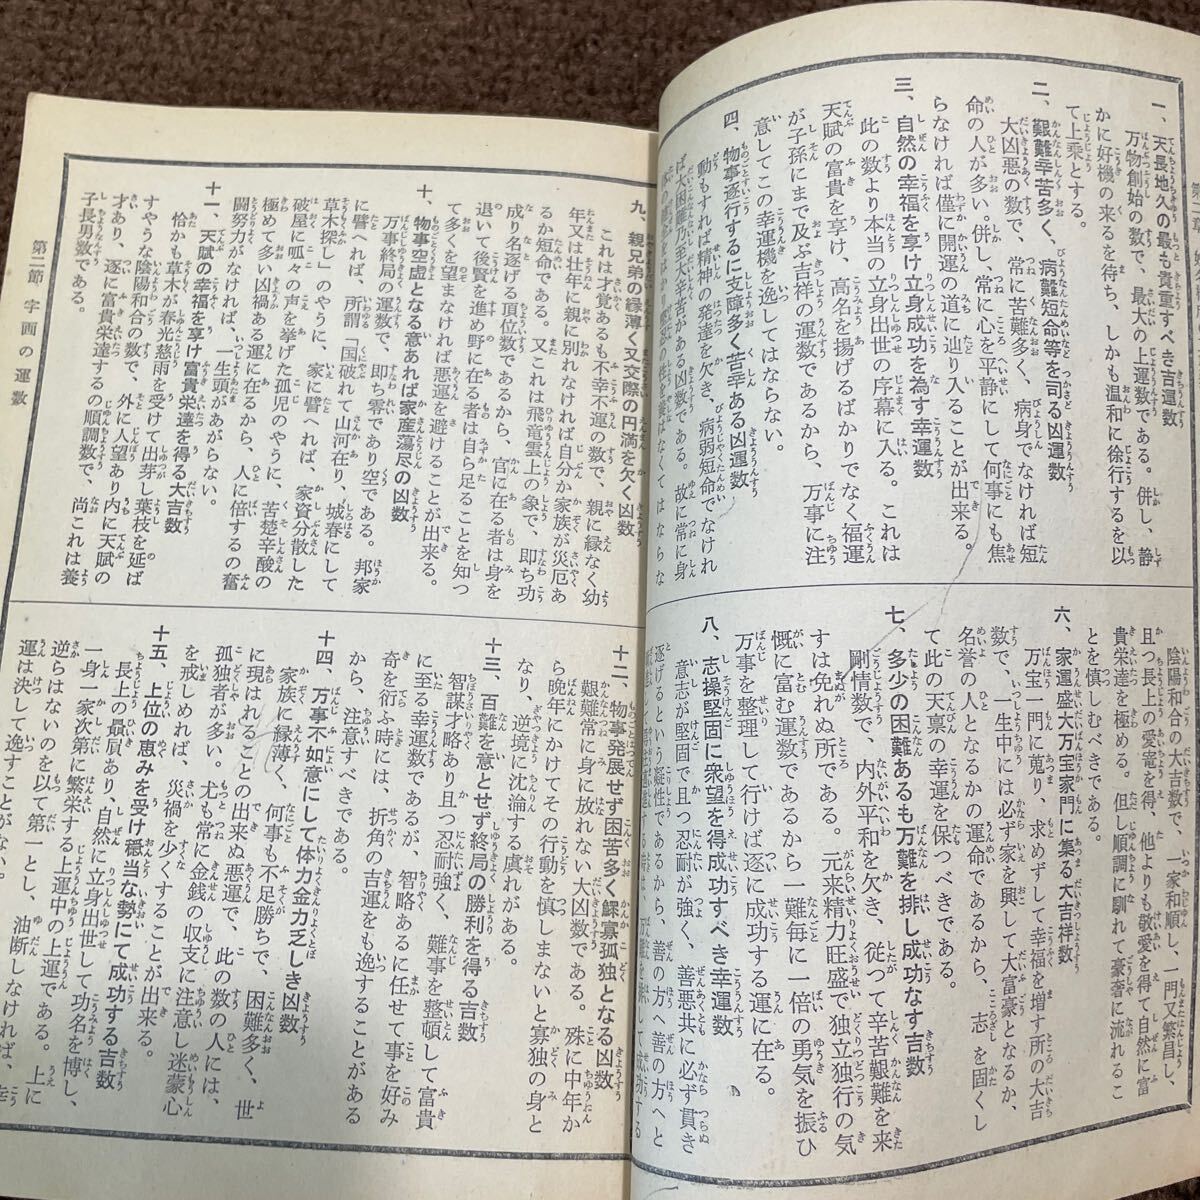 一、天長地久の最も貴重すべき吉運数
万物創始の数で、最大の上運数である。併し、静
かに好機の来るを待ち、しかも温和に徐行するを以
て上乗とする。
二、艱難辛苦多く、病難短命等を司る凶運数
大凶悪の数で、常に苦難多く、病身でなければ短
命の人が多い。併し、常に心を平静にして何事にも焦
らなければ僅かに開運の道に辿り入ることが出来る。
三、自然の幸福を享け立身成功を為す幸運数
此の数より本当の立身出世の序幕に入る。これは
天賦の富貴を享け、高名を揚げるばかりでなく福運
が子孫にまで及ぶ吉祥の運数であるから、万事に注
意してこの幸運機を逸してはならない。
四、物事遂行するに支障多く苦辛ある凶運数
動もすれば精神の発達を欠き、病弱短命でなけれ
ば大困難乃至大辛苦がある凶数である。故に常に身
陰陽和合の大吉数で、一家和順し、一門又繁昌し、
且つ長上の愛寵を得、他よりも敬愛を得て自然に富
貴栄達を極める。但し順調に馴れて豪奢に流れるこ
とを慎しむべきである。
六、家運盛大万宝家門に集る大吉祥数
万宝一門に蒐り、求めずして幸福を増す所の大吉
数で、一生中には必らず家を興して大富豪となるか、
名誉の人となるかの運命であるから、志を固くし
て此の天禀の幸運を保つべきである。
七、多少の困難あるも万難を排し成功なす吉数
剛情数で、内外平和を欠き、従つて辛苦艱難を来
すは免れぬ所である。元来精力旺盛で独立独行の気
慨に富む運数であるから一難毎に一倍の勇気を振ひ
万事を整理して行けば遂に成功する運に在る。
八、志操堅固に衆望を得成功すべき幸運数
意志が堅固で且つ忍耐が強く、善悪共に必ず貫き
遂げるという疑性であるから、善の方へ善の方へと
九、親兄弟の縁薄く又交際の円満を欠く凶数
これは才覚あるも不幸不運の数で、親に縁なく幼
年又は壮年に親に別れなければ自分か家族が災厄あ
るか短命である。又これは飛竜雲上の象で、即ち功
成り名逐げる頂位数であるから、官に在る者は身を
退いて後賢を進め野に在る者は自ら足ることを知つ
て多くを望まなければ悪運を避けることが出来る。
十、物事空虚となる意あれば家産蕩尽の凶数
万事終局の運数で、即ち零であり空である。邦家
に譬へれば、所謂「国破れて山河在り、城春にして
草木探し」のやうに、家に譬へれば、家資分散した
破屋に呱々の声を挙げた孤児のやうに、苦楚辛酸の
極めて多い凶禍ある運に在るから、人に倍するの奮
闘努力がなければ、一生頭があがらない。
十一、天賦の幸福を享け富貴栄達を得る大吉数
恰かも草木が春光慈雨を受けて出芽し葉枝を延ば
すやうな陰陽和合の数で、外に人望あり内に天賦の
才あり、逐に富貴栄達するの順調数で、尚これは養
子長男数である。
十二、物事発展せず困苦多く鰥寡孤独となる凶数
艱難常に身に放れない大凶数である。殊に中年か
ら晩年にかけてその行動を慎しまないと寡独の身と
なり、逆境に沈淪する虞れがある。
十三、百難を意とせず終局の勝利を得る吉数
智謀才略あり且つ忍耐強く、難事を整頓して富貴
に至る幸運数であるが、智略あるに任せて事を好み
奇を衒ふ時には、折角の吉運をも逸することがある
から、注意すべきである。
十四、万事不如意にして体力金力乏しき凶数
家族に縁薄く、何事も不足勝ちで、困難多く、世
に現はれることの出来ぬ悪運で、此の数の人には、
孤独者が多い。尤も常に金銭の収支に注意し迷蒙心
を戒しめれば、災禍を少くすることが出来る。
十五、上位の恵みを受け穏当な勢にて成功する吉数
長上の最屓あり、自然に立身出世して功名を博し、
一身一家次第に繁栄する上運中の上運である。上に
逆らはないのを以て第一とし、油断しなければ、幸
運は決して逸すことがない。
第二節 字画の運数